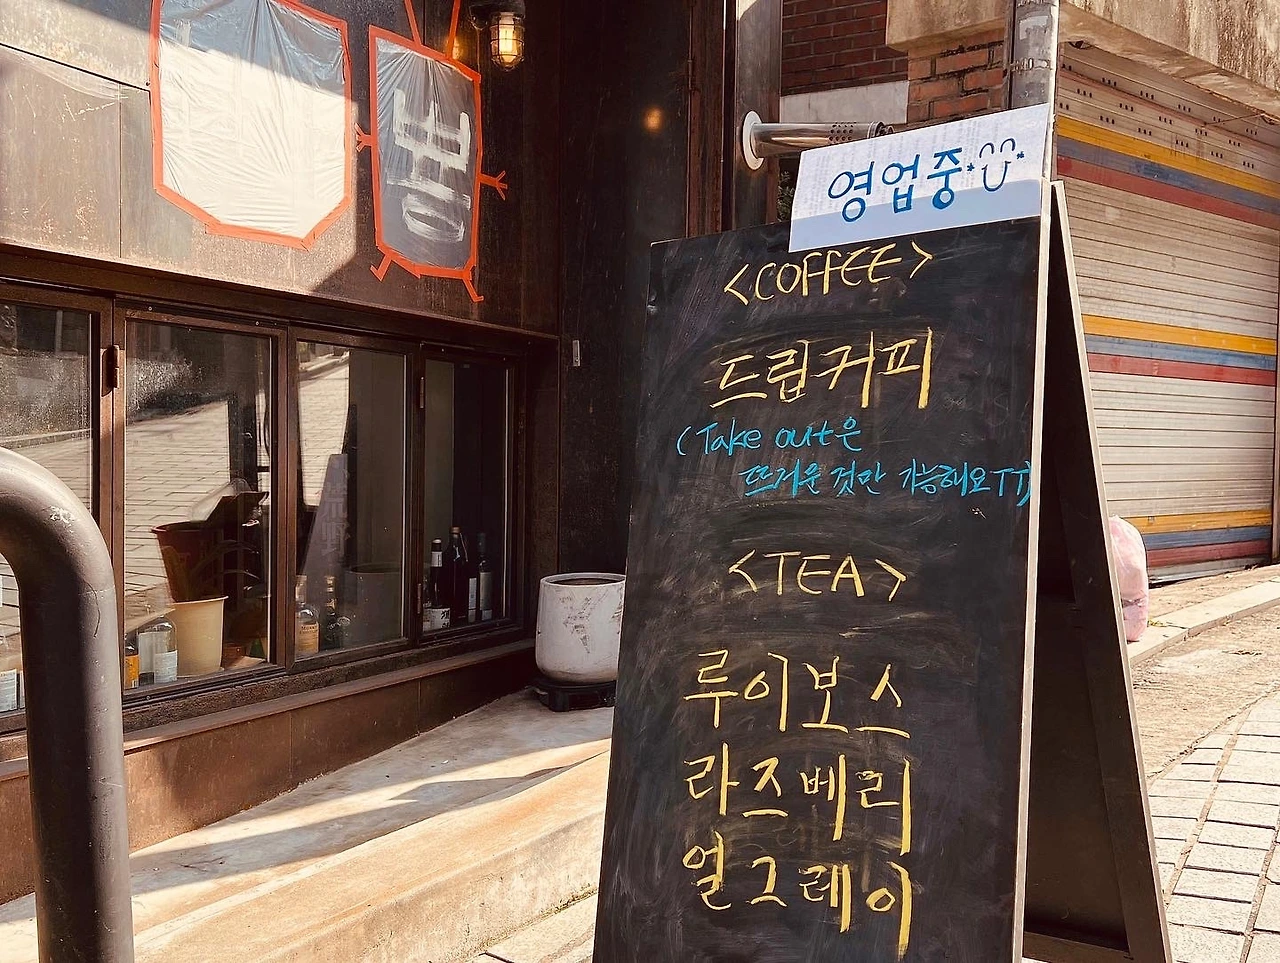 영업중
<COFFEE>
드립커피
(Take out은
뜨거운 것만 가능해요TT)
<TEA>
루이보스
라즈베리
얼그레이